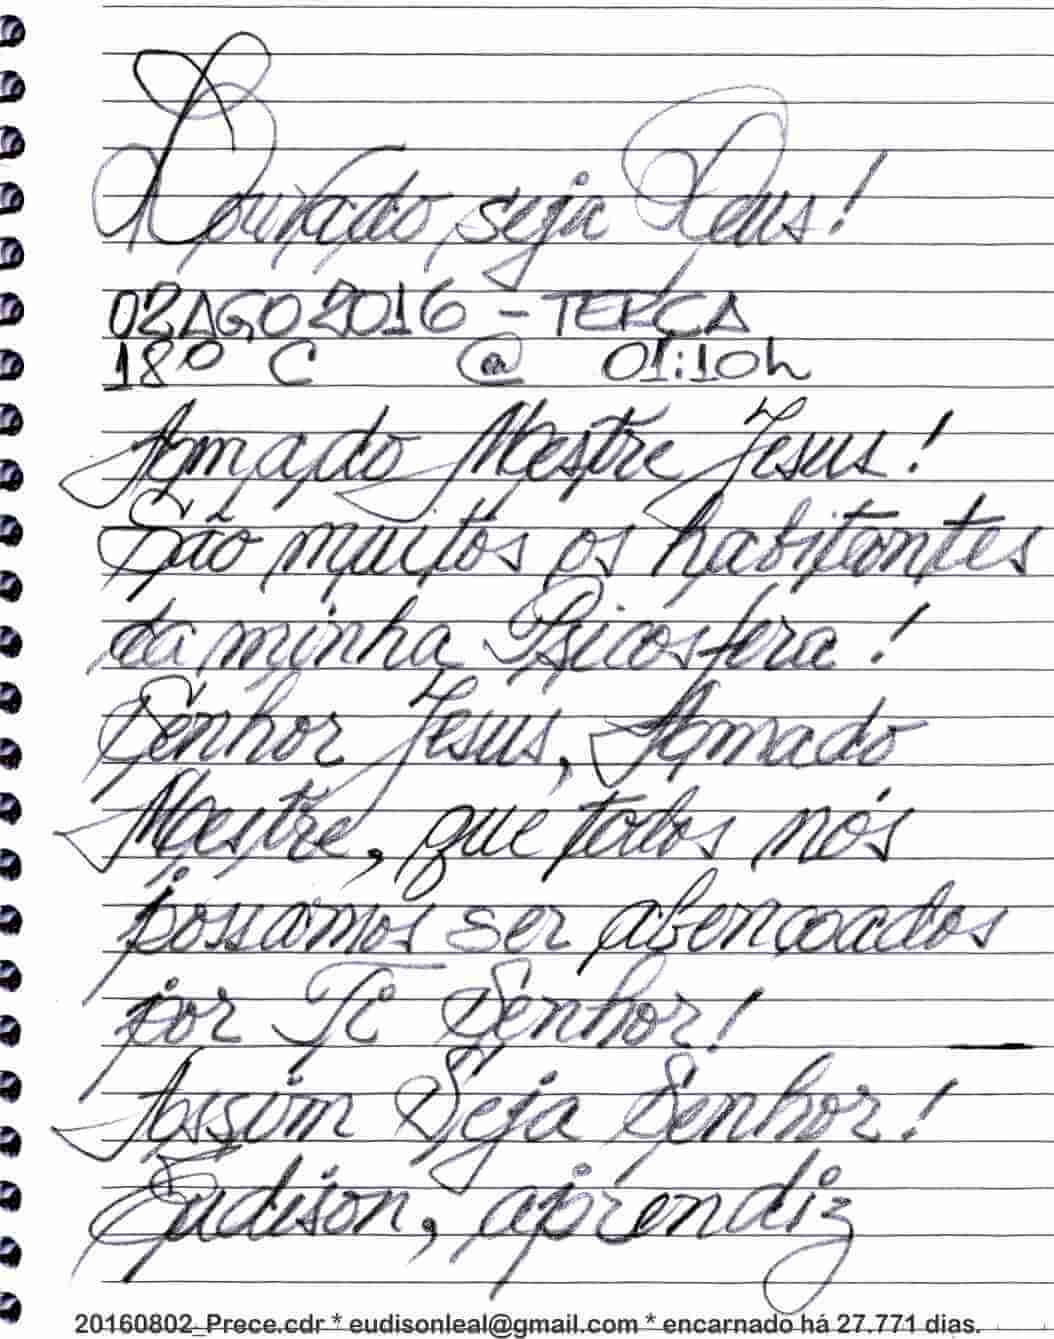 Louvado seja Deus!
02AGO2016 - TERÇA
18º C @ 01:10h
Amado Mestre Jesus!
São muitos os habitantes
da minha Psicosfera!
Senhor Jesus, Amado
Mestre, que todos nós
possamos ser abençoados
por Ti Senhor!
Assim Seja Senhor!
Eudison, aprendiz
20160802_Prece.cdr * eudisonleal@gmail.com * encarnado há 27.771 dias.